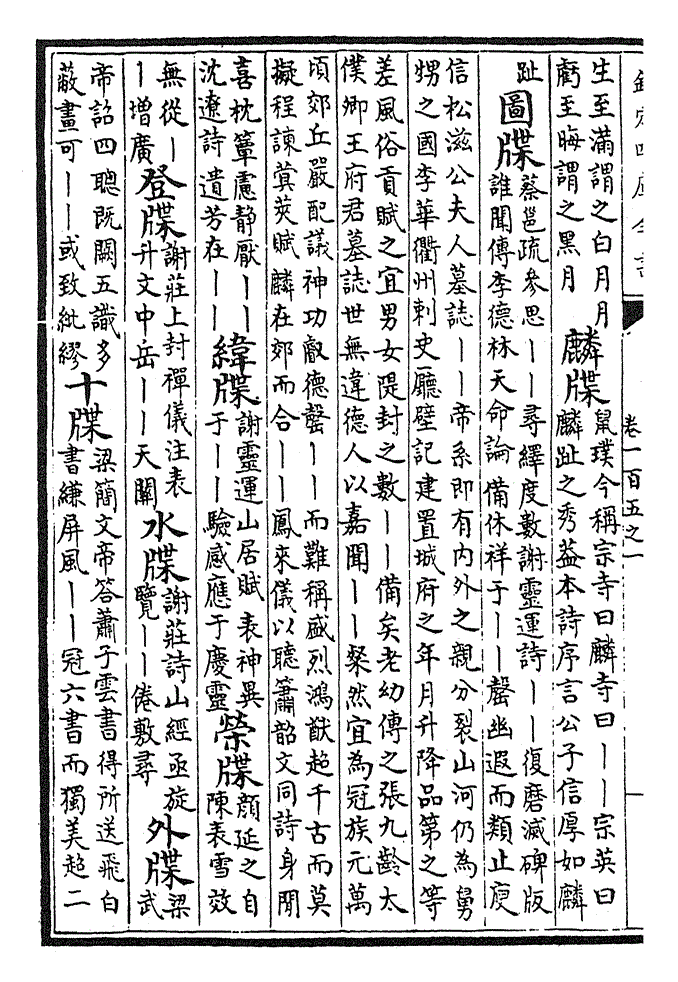 欽定四庫全書
卷一百五之一
生至滿謂之白月月
虧至晦謂之黑月
麟牒
鼠璞今稱宗寺曰麟寺曰――宗英曰
麟趾之秀蓋本詩序言公子信厚如麟
趾
圖牒
蔡邕疏參思――尋繹度數謝靈運詩――復磨滅碑版
誰聞傳李德林天命論備休祥于――罄幽遐而類止庾
信松滋公夫人墓誌――帝系即有內外之親分裂山河仍為舅
甥之國李華衢州刺史廳壁記建置城府之年月升降品第之等
差風俗貢賦之宜男女隄封之數――備矣老幼傳之張九齡太
僕卿王府君墓誌世無違德人以嘉聞――粲然宜為冠族元萬
頃郊丘嚴配議神功叡德罄――而難稱盛烈鴻猷超千古而莫
擬程諫蓂莢賦麟在郊而合――鳳來儀以聽簫韶文同詩身閒
喜枕簟慮靜厭――
沈遼詩遺芳在――
緯牒
謝靈運山居賦表神異
于――驗感應于慶靈
榮牒
顏延之自
陳表雪效
無從―
―增廣
登牒
謝莊上封禪儀注表
升文中岳――天關
水牒
謝莊詩山經亟旋
覽――倦敷尋
外牒
梁
武
帝詔四聰既闕五識多
蔽畫可――或致紕繆
十牒
梁簡文帝答蕭子雲書得所送飛白
書縑屏風――冠六書而獨美超二